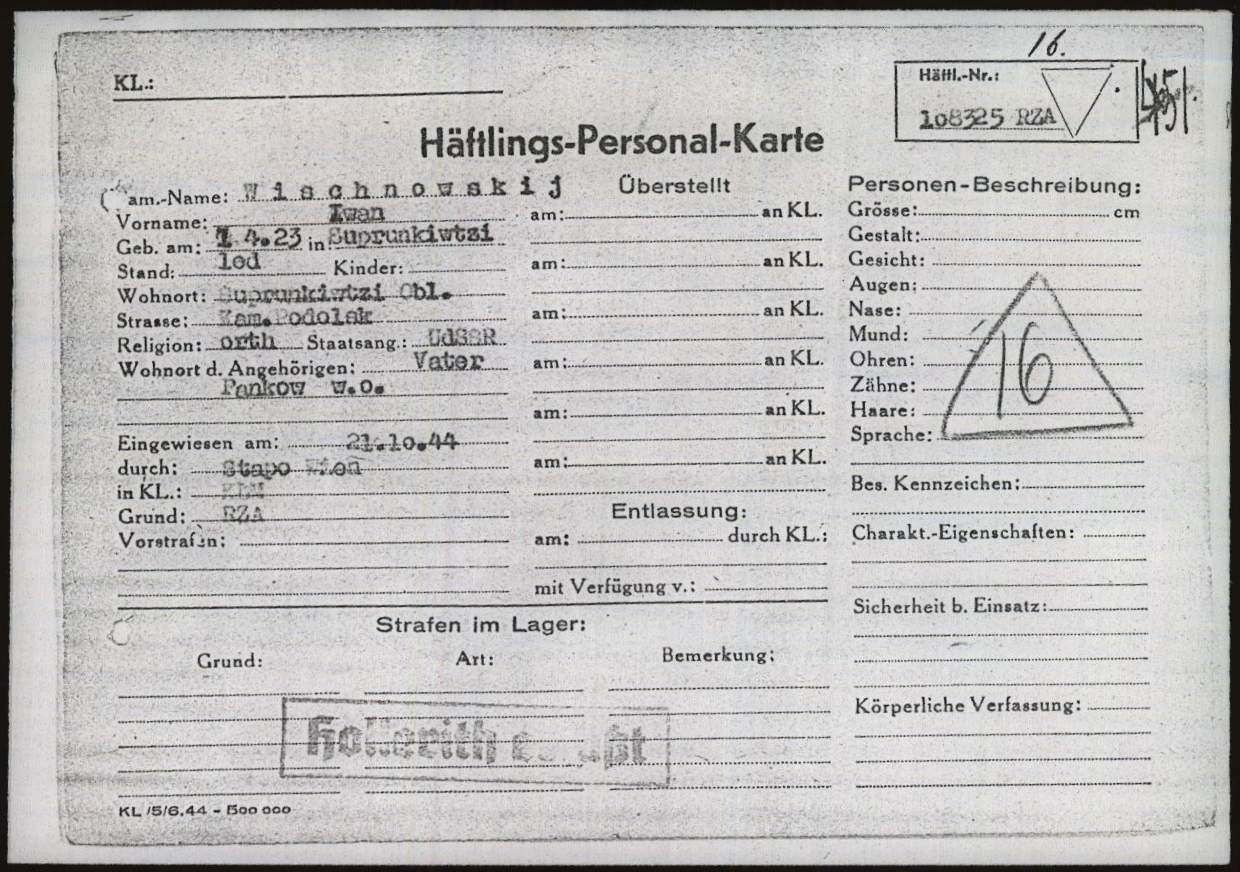 16.
KL.:
Häftl.-Nr.:
108325 RZA
Häftlings-Personal-Karte
Fam.-Name: Wischnowskij
Vorname: Iwan
Geb. am: 1.4.23 in Suprunkiwtzi
Stand: led Kinder:
Wohnort: Suprunkiwtzi Obl.
Strasse: Kam.Podolsk
Religion: orth Staatsang.: UdSSR
Wohnort d. Angehörigen: Vater
Pankow w.o.
Eingewiesen am: 21.10.44
durch: Stapo Wien
in KL.: KLM
Grund: RZA
Vorstrafen:
Überstellt
am: an KL.
am: an KL.
am: an KL.
am: an KL.
am: an KL.
am: an KL.
Entlassung:
am: durch KL.:
mit Verfügung v.:
Personen-Beschreibung:
Grösse: cm
Gestalt:
Gesicht:
Augen:
Nase:
Mund:
Ohren:
Zähne:
Haare:
Sprache:
16
Bes. Kennzeichen:
Charakt.-Eigenschaften:
Sicherheit b. Einsatz:
Körperliche Verfassung:
Strafen im Lager:
Grund: Art: Bemerkung:
Hollerith erfaßt
KL/5/6.44 - 500 000